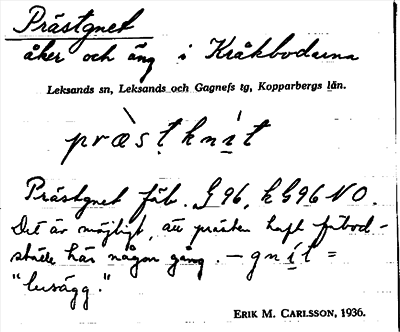 Prästgnet
åker och äng i Kråkbodarna
Leksands sn, Leksands och Gagnefs tg, Kopparbergs län.
præ̀stkni̱t
Prästgnet fäb. G 96, h G 96 NO.
Det är möjligt, att prästen haft fäbod-
ställe här någon gång. — gni̱t =
"lusägg."
ERIK M. CARLSSON, 1936.